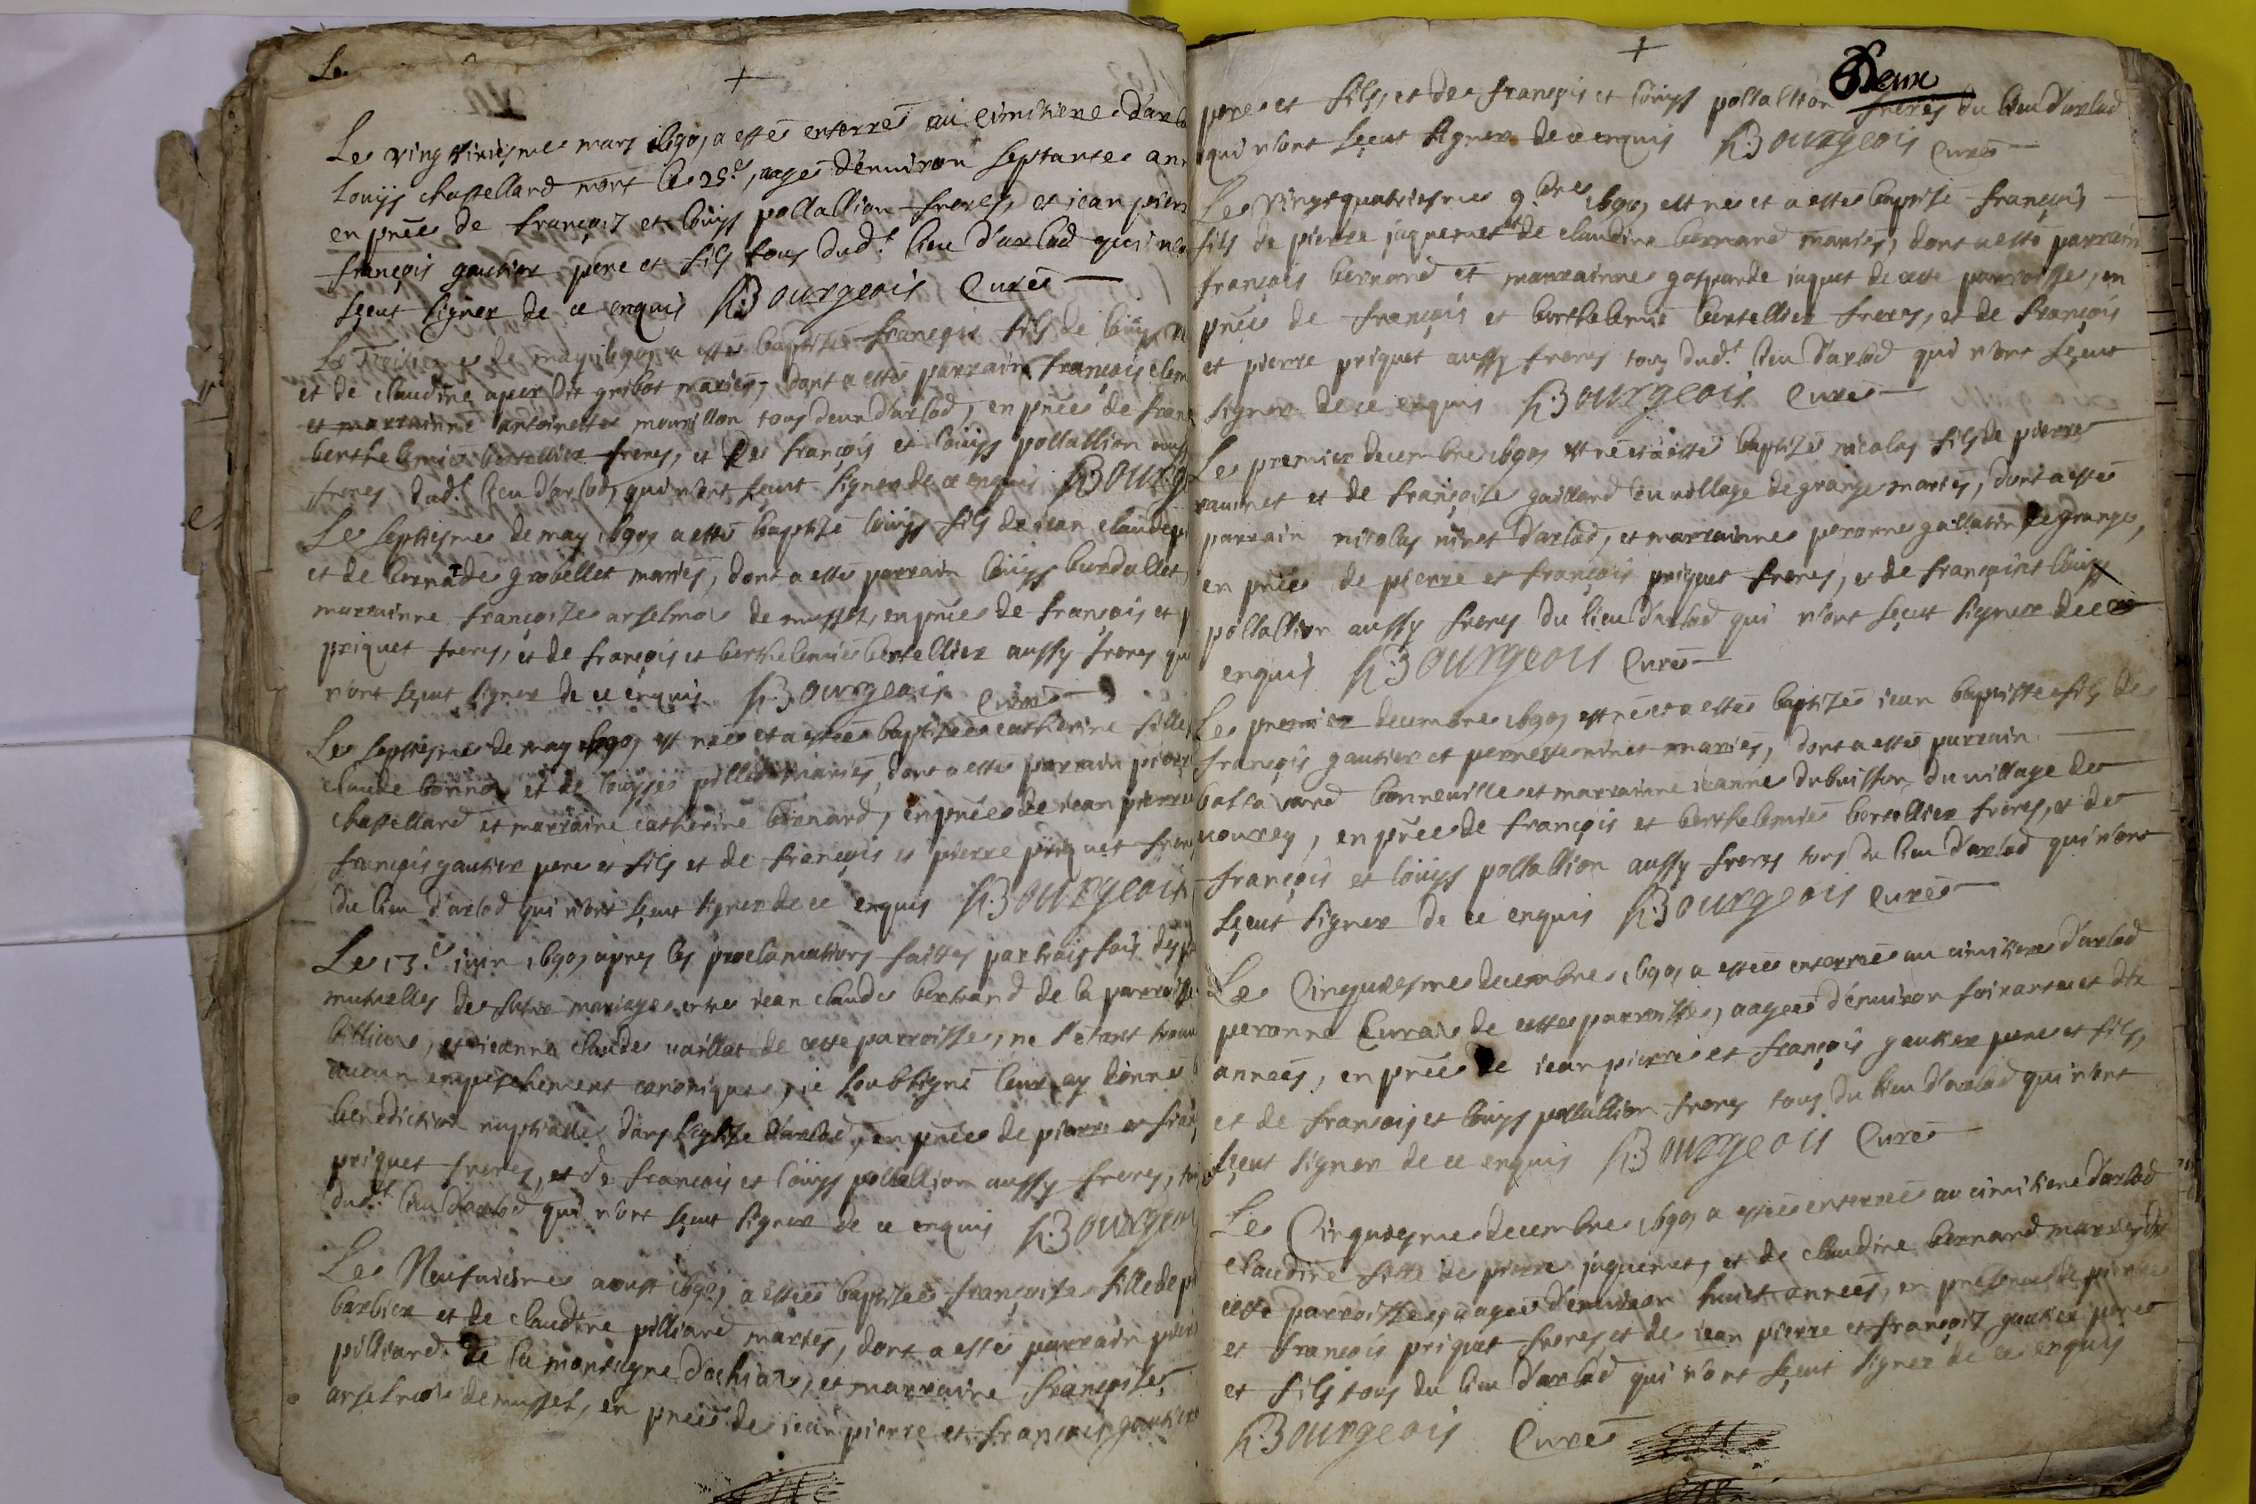 Le
Le vingt sixiesme mars 1690, a esté enterré au cimitiere d'arlo
Louijs chastellard mort le 25.e, aagé d'enuiron septante ann
en pnce de françois et louijs pollallion freres, et iean pierr
françois gautier pere et fils tous dud.t lieu d'arlod qui n'o
sçeut signer de ce enquis h:Bourgeois Curé
Le Troisieme de may 1690, a esté baptisé françois fils de louijs
et de claudine apur dit gribot mariés, dont a esté parrain françois clem
et marrainne antoinette mourillon tous deux d'arlod, en pnce de franç
berthelemie bertellier freres, et de françois et louijs pollallion auss
freres dud.t lieu d'arlod, qui n'ont sçeut signer de ce enquis h:Bourg
Le septiesme de may 1690, a esté baptizé louijs fils de iean claude
et de bernade grobellet mariés, dont a esté parrain louijs burdallet,
marrainne françoize anselmo de musset, en pnce de françois et p
priquet freres, et de françois et berthelemie bertellier aussy freres qu
n'ont sçeut signer de ce enquis h:Bourgeois Curé
Le septiesme de may 1690, est née et a estée baptizée catherine fille
claude et de louijse pillet mariés, dont a esté parrain pierr
chastellard et marraine catherine bernard, en pnce de iean pierre
françois gautier pere et fils et de françois et pierre priquet frer
du lieu d'arlod qui n'ont sçeut signer de ce enquis h:Bourgeois
Le 13.e iuin 1690, apres les proclamations faittes par trois fois des p
mutuelles de futur mariage entre iean claude bertrand de la parroisse
billia, et ieanne claude uaillat de cette parroisse, ne s'etant trouu
aucun empeschement canonique, ie soubsigné leur ay donné
benediction nuptialle dans l'eglize d'arlod, en pnce de pierre et fra
priquet freres, et de françois et louijs pollallion aussy freres, to
dud.t lieu d'arlod qui n'ont sçeut signer de ce enquis h:Bourgeoi
Le Neufuieme aoust 1690, a estée baptizée françoize fille de pi
barbier et de claudine pilliard mariés, dont a esté parrain pier
pilliard de la montagne d'ochia, et marraine françoize
anselmo de musset, en pnce de iean pierre et françois gautier
Deux
pere et fils, et de françois et louijs pollallion freres du lieu d'arlod
qui n'ont sçeut signer de ce enquis h:Bourgeois Curé
Le vingt quatriesme 9.bre 1690, est né et a esté baptizé françois
fils de pierre jaquemet et de claudine bernard mariés, dont a esté parrain
françois bernard et marrainne gasparde iaquet de cette parroisse, en
pnce de françois et berthelemie bertellier freres, et de françois
et pierre priquet aussy freres tous dud.t lieu d'arlod qui n'ont sçeut
signer de ce enquis h:Bourgeois Curé
Le premier decembre 1690, est né et a esté baptizé nicolas fils de pierre
rauinet et de françoize gaillard du uillage de grange mariés, dont a esté
parrain nicolas ninet d'arlod, et marrainne peronne gallatin de grange,
en pnce de pierre et françois priquet freres, et de françois et louijs
pollallion aussy freres du lieu d'arlod qui n'ont sçeut signer de ce
enquis h:Bourgeois Curé
Le premier decembre 1690, est né et a esté baptizé iean baptiste fils de
françois gautier et pernette ninet mariés, dont a esté parrain
bonneuille et marrainne ieanne dubuisson du uillage de
uouuray, en pnce de françois et berthelemie bertellier freres, et de
françois et louijs pollallion aussy freres tous du lieu d'arlod qui n'ont
sçeut signer de ce enquis h:Bourgeois Curé
Le Cinquiesme decembre 1690, a estée enterrée au cimitiere d'arlod
peronne Curra de cette parroisse, aagée d'enuiron soixante et dix
années, en pnce de iean pierre et françois gautier pere et fils,
et de françois et louijs pollallion freres tous du lieu d'arlod qui n'ont
sçeut signer de ce enquis h:Bourgeois Curé
Le Cinquiesme decembre 1690, a estée enterrée au cimitiere d'arlod
claudine fille de pierre jaquemet, et de claudine bernard mariés de
cette parroisse, aagée d'enuiron huict années, en presence de pierre
et françois priquet freres, et de iean pierre et françois gautier pere
et fils tous du lieu d'arlod qui n'ont sçeut signer de ce enquis
h:Bourgeois Curé